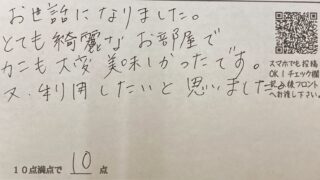 お世話になりました。
とても綺麗な お部屋で
カニも大変 美味しかったです。
又、利用したいと思いました
スマホでも投稿
OK！チェック欄
後フロント
へお渡し下さい。
10点満点で 10 点